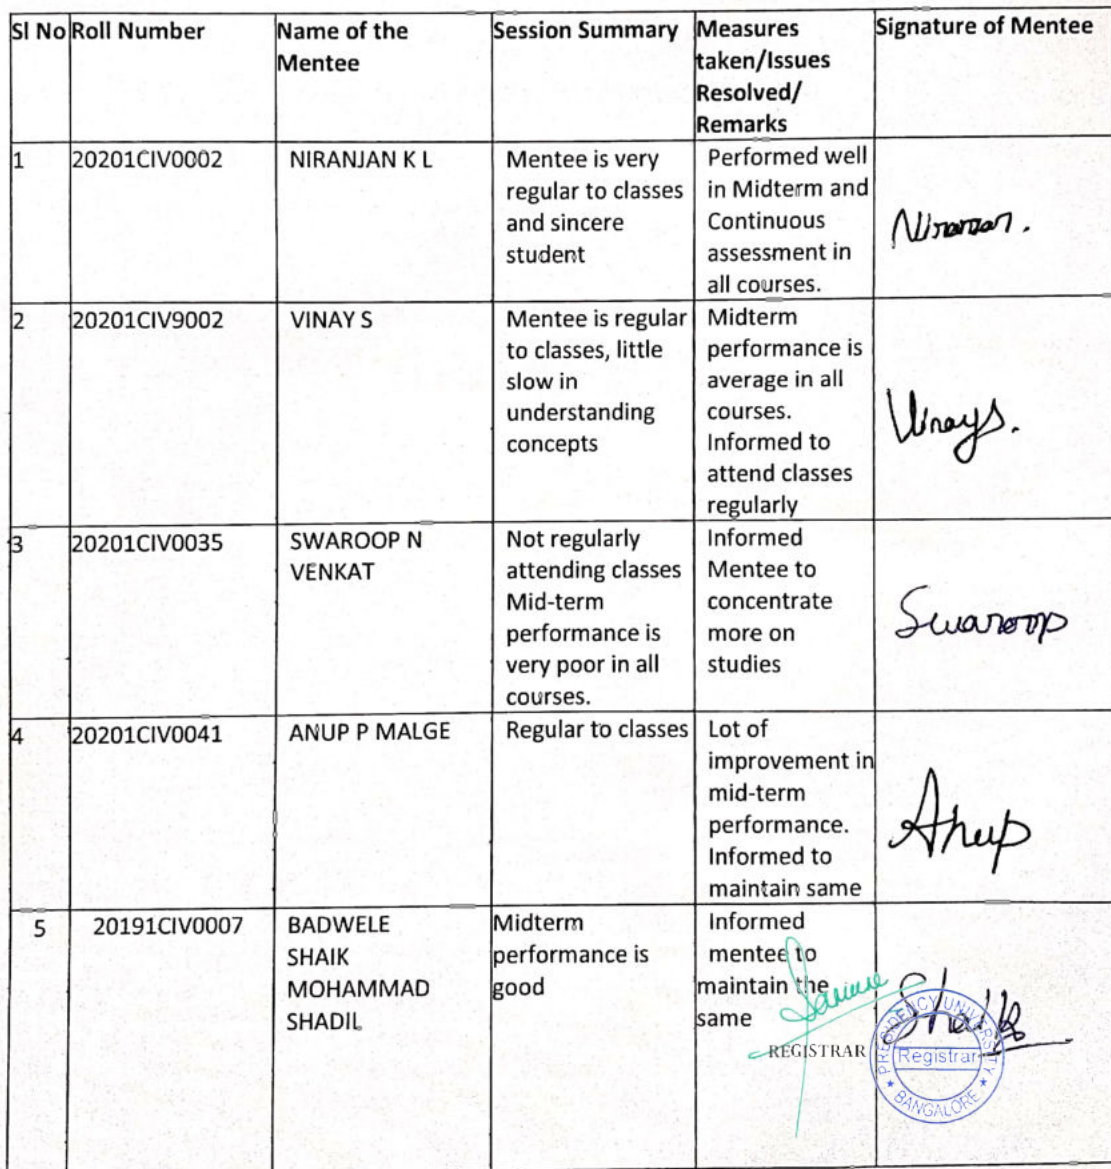 Sl No Roll Number Name of the Mentee Session Summary Measures taken/Issues Resolved/ Remarks Signature of Mentee
1 20201CIV0002 NIRANJAN K L
Mentee is very
regular to classes
and sincere
student
Performed well
in Midterm and
Continuous
assessment in
all courses.
2 20201CIV9002 VINAY S
Mentee is regular
to classes, little
slow in
understanding
concepts
Midterm
performance is
average in all
courses.
Informed to
attend classes
regularly
Vinay S.
3 20201CIV0035 SWAROOP N
VENKAT
Not regularly
attending classes
Mid-term
performance is
very poor in all
courses.
Informed
Mentee to
concentrate
more on
studies
Swaroop
4 20201CIV0041 ANUP P MALGE
Regular to classes
Lot of
improvement in
mid-term
performance.
Informed to
maintain same
Anup
5 20191CIV0007 BADWELE
SHAIK
MOHAMMAD
SHADIL
Midterm
performance is
good
Informed
mentee to
maintain the
same
REGISTRAR
PRESIDENCY UNIVERSITY
Registrar
★ BANGALORE ★